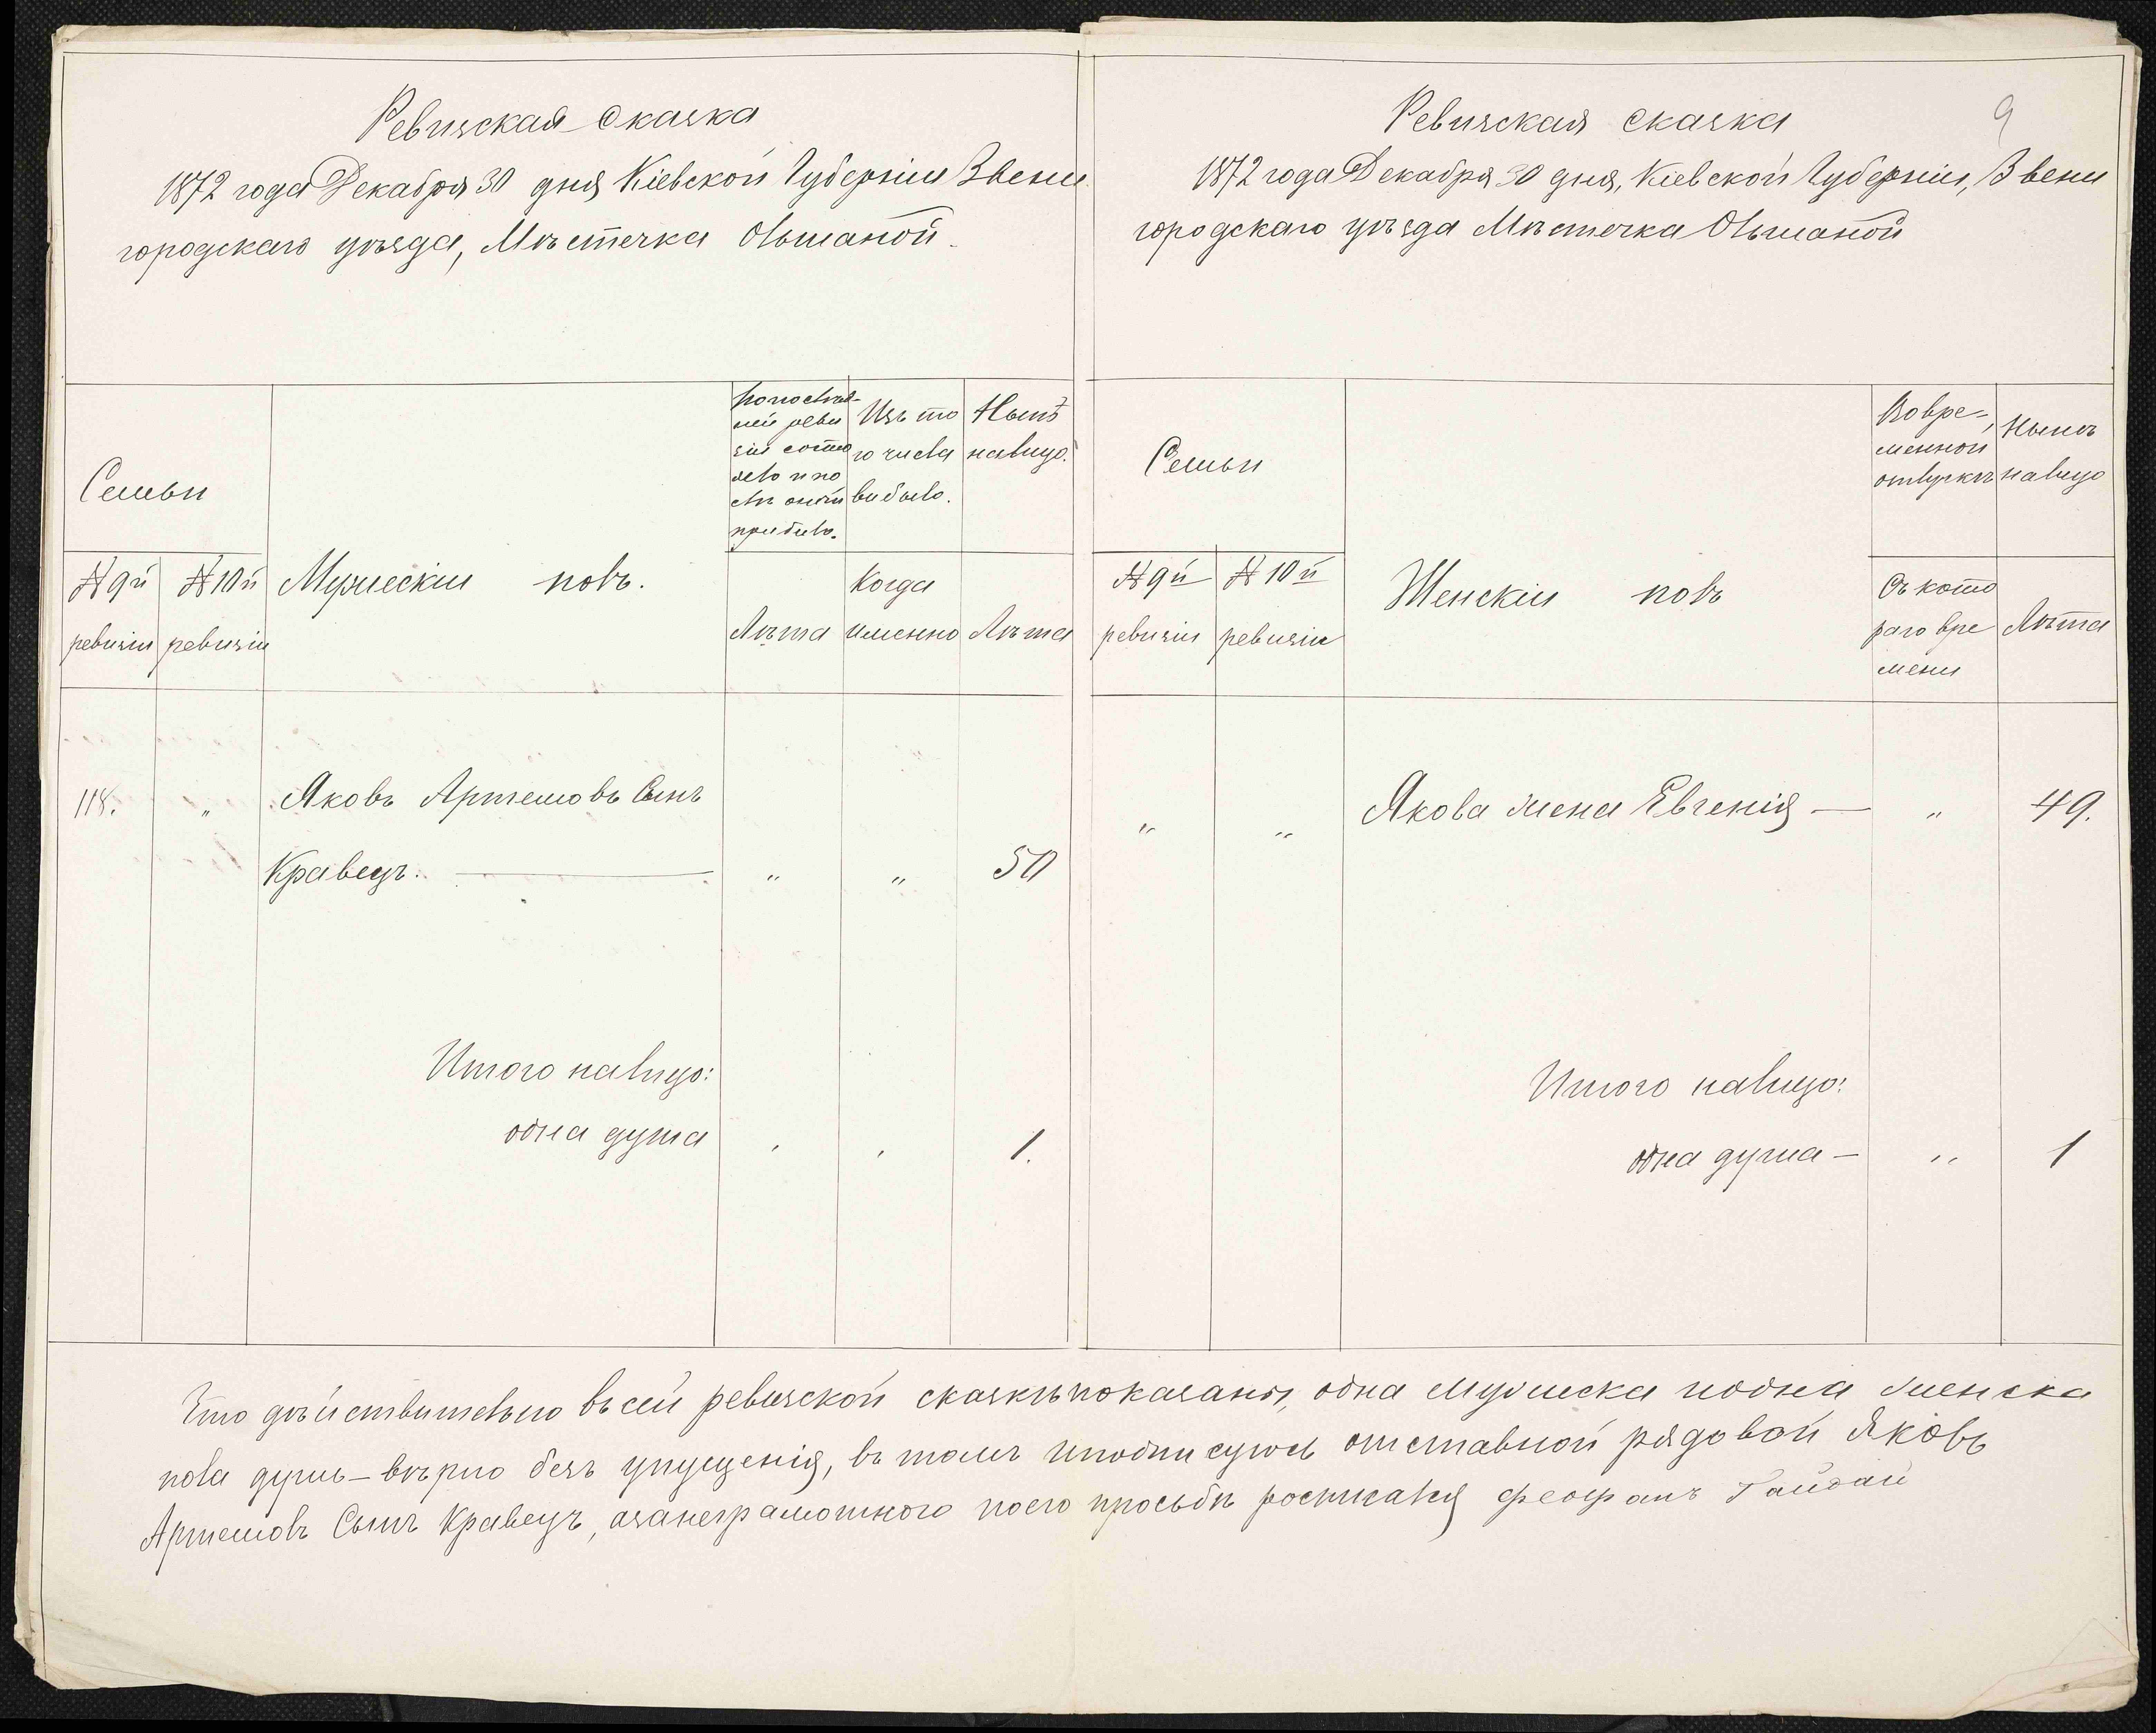 Ревизская сказка
1872 года Декабря 30 дня Кіевской Губерніи Звени
городскаго уѣзда, Мѣстечка Ольшаной.
Семьи
№ 9й ревизіи
№ 10й ревизіи
Мужескій полъ.
По послѣд-
ней реви
зіи состо
яло и по
слѣ оной
прибыло.
Лѣта
Изъ то
го числа
выбыло.
Когда
именно
Нынѣ
налицо.
Лѣта
118. „ Яковъ Артемовъ Сынъ
Кравецъ. — „ „ 50
Итого налицо:
одна душа „ „ 1.
9
Ревизская сказка
1872 года Декабря 30 дня, Кіевской Губерніи, Звени
городскаго уѣзда Мѣстечка Ольшаной
Семьи
№ 9й ревизіи
№ 10й ревизіи
Женскій полъ
Во вре-
менной
отлучкѣ
Съ кото
раго вре
мени
Нынѣ
налицо
Лѣта
„ „ Якова жена Евгенія — „ 49.
Итого налицо:
одна душа — „ 1
Что дѣйствительно въ сей ревизской сказкѣ показаны, одна мужеска и одна женска
пола душъ — вѣрно безъ упущенія, въ томъ и подписуюсь отставной рядовой Яковъ
Артемовъ Сынъ Кравецъ, а за неграмотного по его просьбѣ росписался Феофанъ Гайдай